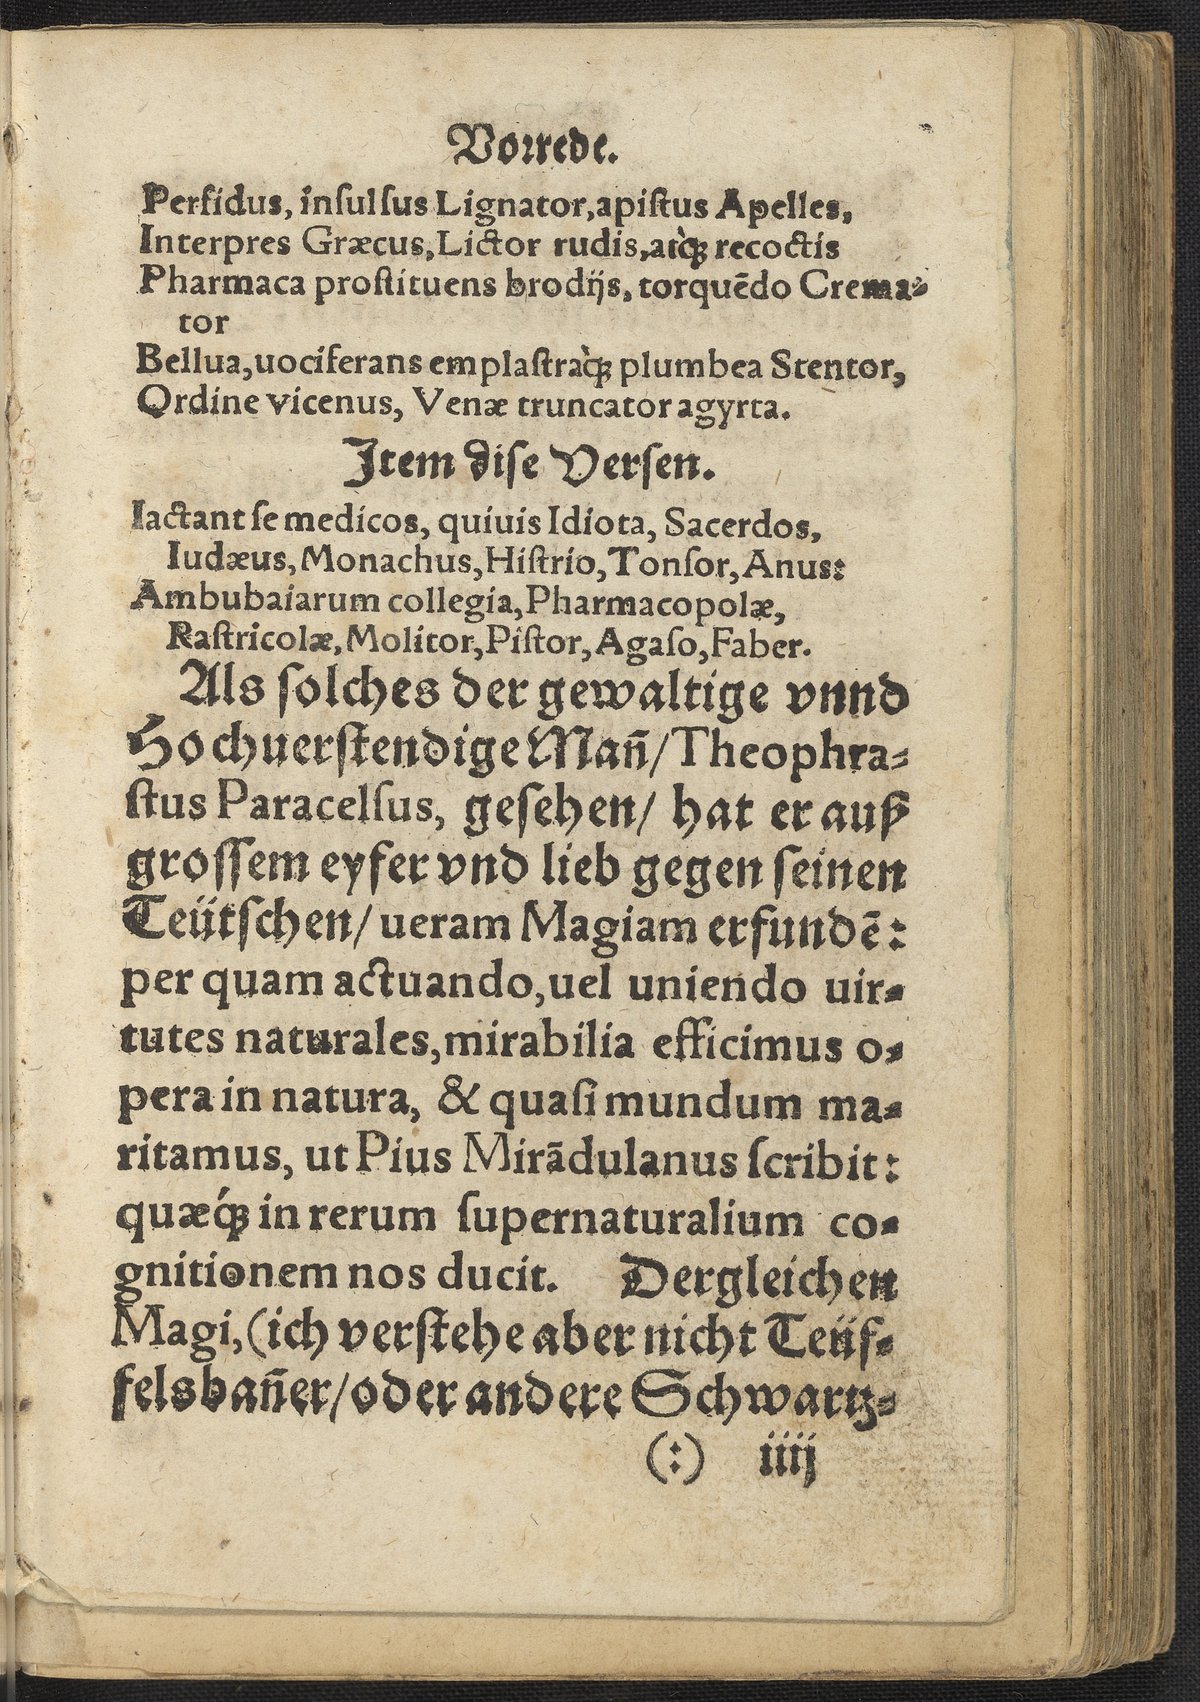 Vorrede.
Perfidus, inſulſus Lignator, apiſtus Apelles,
Interpres Græcus, Lictor rudis, atq̀; recoctis
Pharmaca proſtituens brodijs, torquēdo Crema-
tor
Bellua, uociferans emplaſtraq̀; plumbea Stentor,
Ordine vicenus, Venæ truncator agyrta.
Item diſe Verſen.
Iactant ſe medicos, quiuis Idiota, Sacerdos,
Iudæus, Monachus, Hiſtrio, Tonſor, Anus:
Ambubaiarum collegia, Pharmacopolæ,
Raſtricolæ, Molitor, Piſtor, Agaſo, Faber.
Als ſolches der gewaltige vnnd
Hochuerſtendige Mañ/ Theophra-
ſtus Paracelſus, geſehen/ hat er auß
groſſem eyfer vnd lieb gegen ſeinen
Teütſchen/ ueram Magiam erfundē:
per quam actuando, uel uniendo uir-
tutes naturales, mirabilia efficimus o-
pera in natura, & quaſi mundum ma-
ritamus, ut Pius Mirādulanus ſcribit:
quæq́; in rerum ſupernaturalium co-
gnitionem nos ducit. Dergleichen
Magi, (ich verſtehe aber nicht Teüf-
felsbañer/ oder andere Schwartz-
(:) iiij